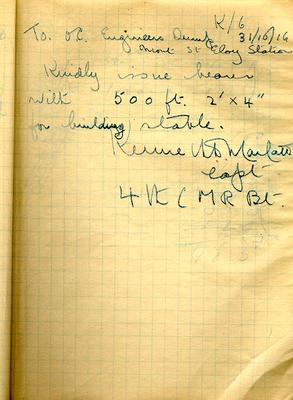 K/6
To. O.C. Engineers Dump 31/10/16
Mont St Eloy Station
Kindly issue bearer
with 500 ft. 2' x 4"
for building stable.
Capt
4th C M R Bt.